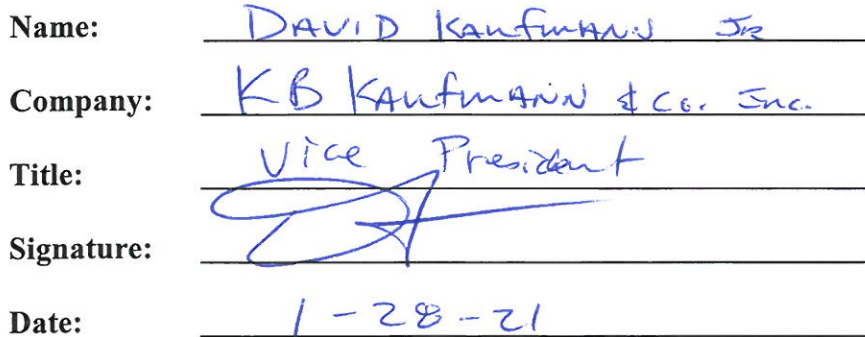 Name: DAVID KAUFMANN JR
Company: KB KAUFMANN & Co. Inc.
Title: Vice President
Signature:
Date: 1-28-21